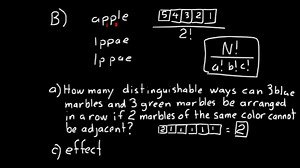 B) apple 5 4 3 2 1
2!
1ppae
1ppae
N!
a! b! c!
a) How many distinguishable ways can 3 blue
marbles and 3 green marbles be arranged
in a row if 2 marbles of the same color cannot
be adjacent? 2 1 1 1 1 1 = 2
c) effect